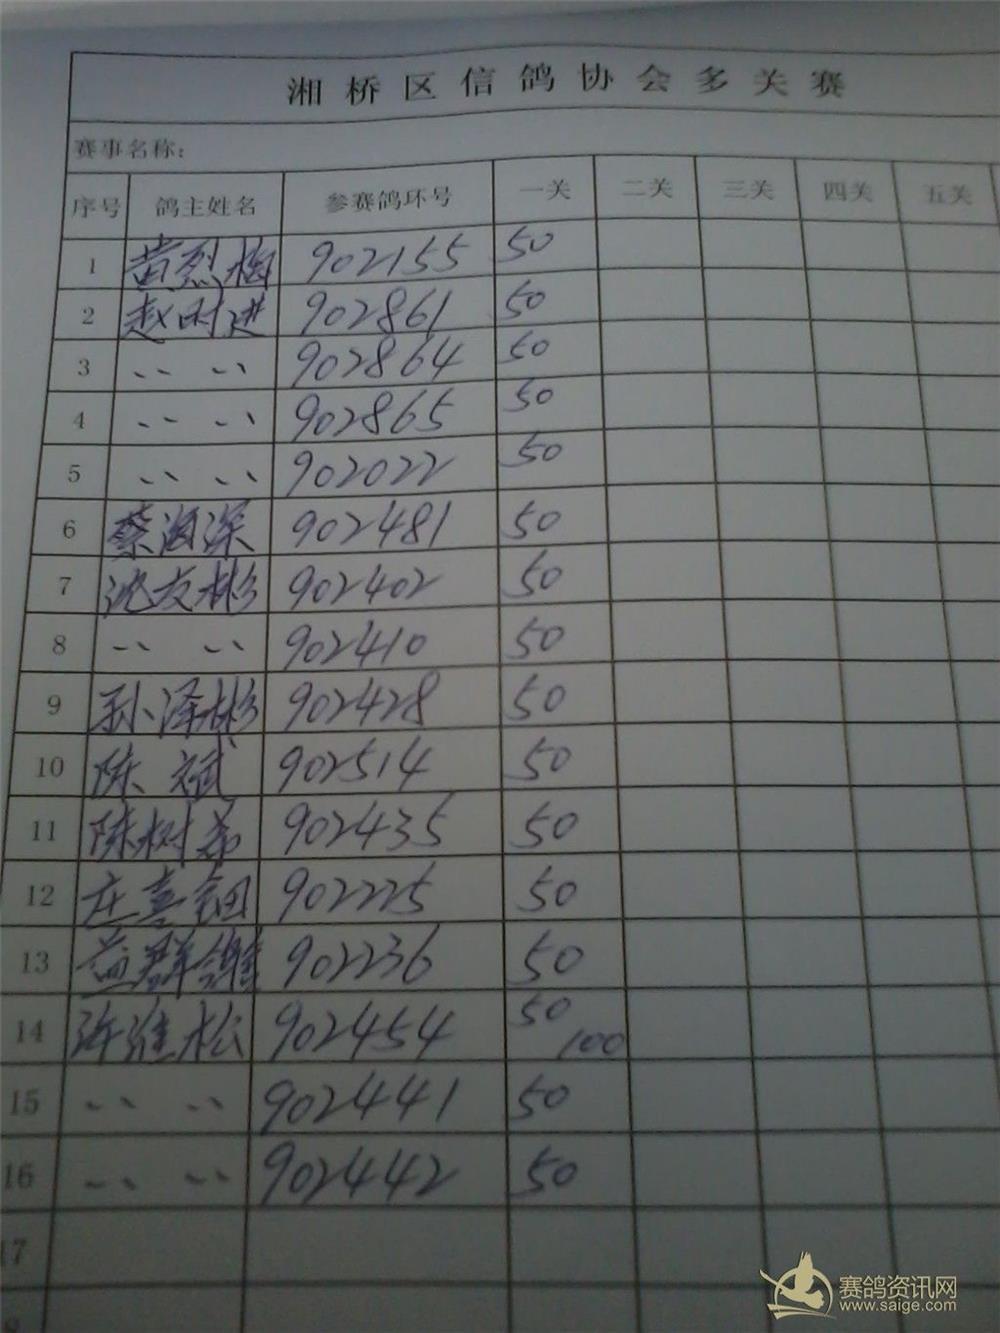 湘桥区信鸽协会多关赛
赛事名称：
序号 鸽主姓名 参赛鸽环号 一关 二关 三关 四关 五关
1 黄烈梅 902155 50
2 赵时进 902861 50
3 〃 〃 902864 50
4 〃 〃 902865 50
5 〃 〃 902022 50
6 蔡海深 902481 50
7 沈友彬 902402 50
8 〃 〃 902410 50
9 孙泽彬 902428 50
10 陈斌 902514 50
11 陈树 902435 50
12 庄喜钿 902225 50
13 益群 902236 50
14 许淮松 902454 50 100
15 〃 〃 902441 50
16 〃 〃 902442 50
17
赛鸽资讯网
www.saige.com